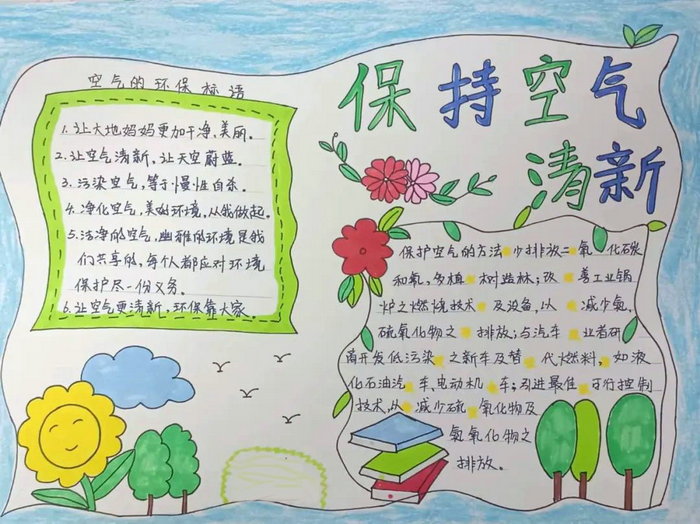 保持空气
清新
空气的环保标语
1.让大地妈妈更加干净、美丽。
2.让空气清新,让天空蔚蓝。
3.污染空气,等于慢性自杀。
4.净化空气,美好环境,从我做起。
5.洁净的空气,幽雅的环境是我
们共享的,每个人都应对环境
保护尽一份义务。
6.让空气更清新,环保靠大家。
保护空气的方法 少排放二氧化碳
和氧,多植树造林;改善工业锅
炉之燃烧技术及设备,以减少氧,
硫氧化物之排放;与汽车业者研
商开发低污染之新车及替代燃料,如液
化石油汽车,电动机车;引进最佳可行控制
技术,以减少硫氧化物及
氮氧化物之
排放。